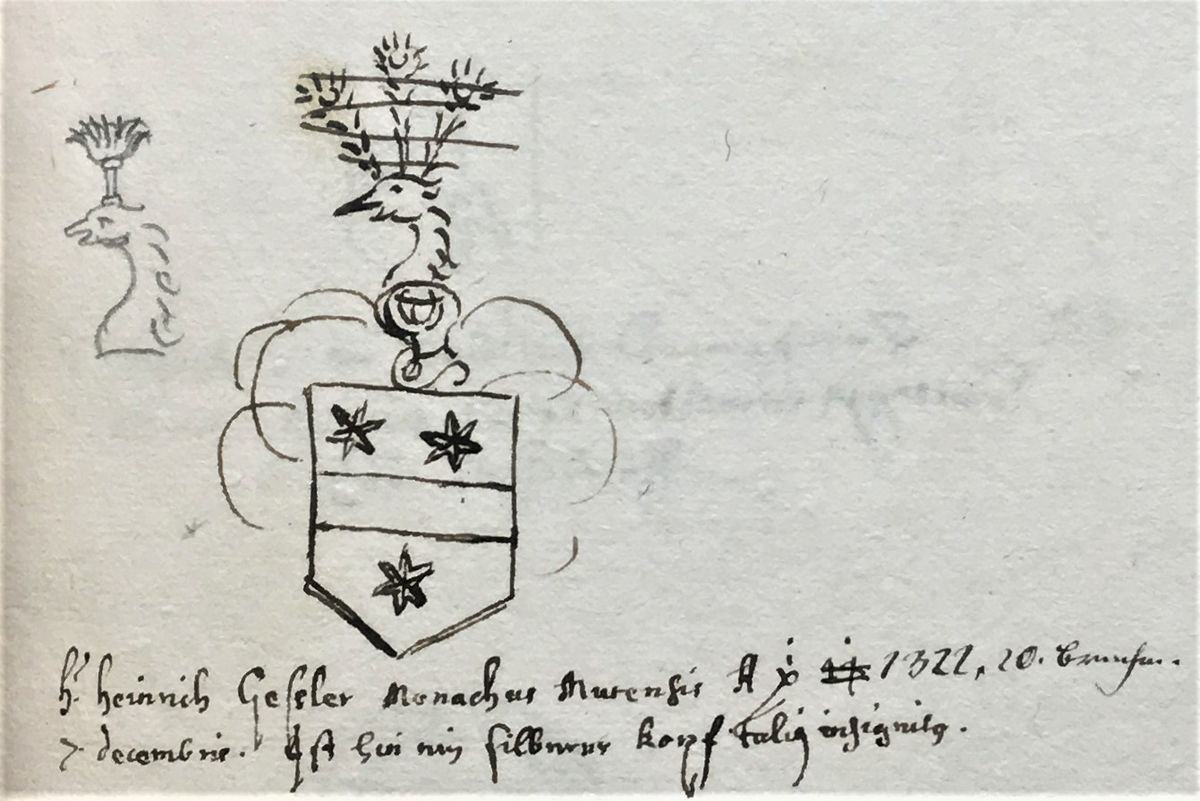 hr heinrich Gessler Monachus Murensis A 1322, 20.
7 decembris. Ist hie ein silbrner kopf talig insignitg.